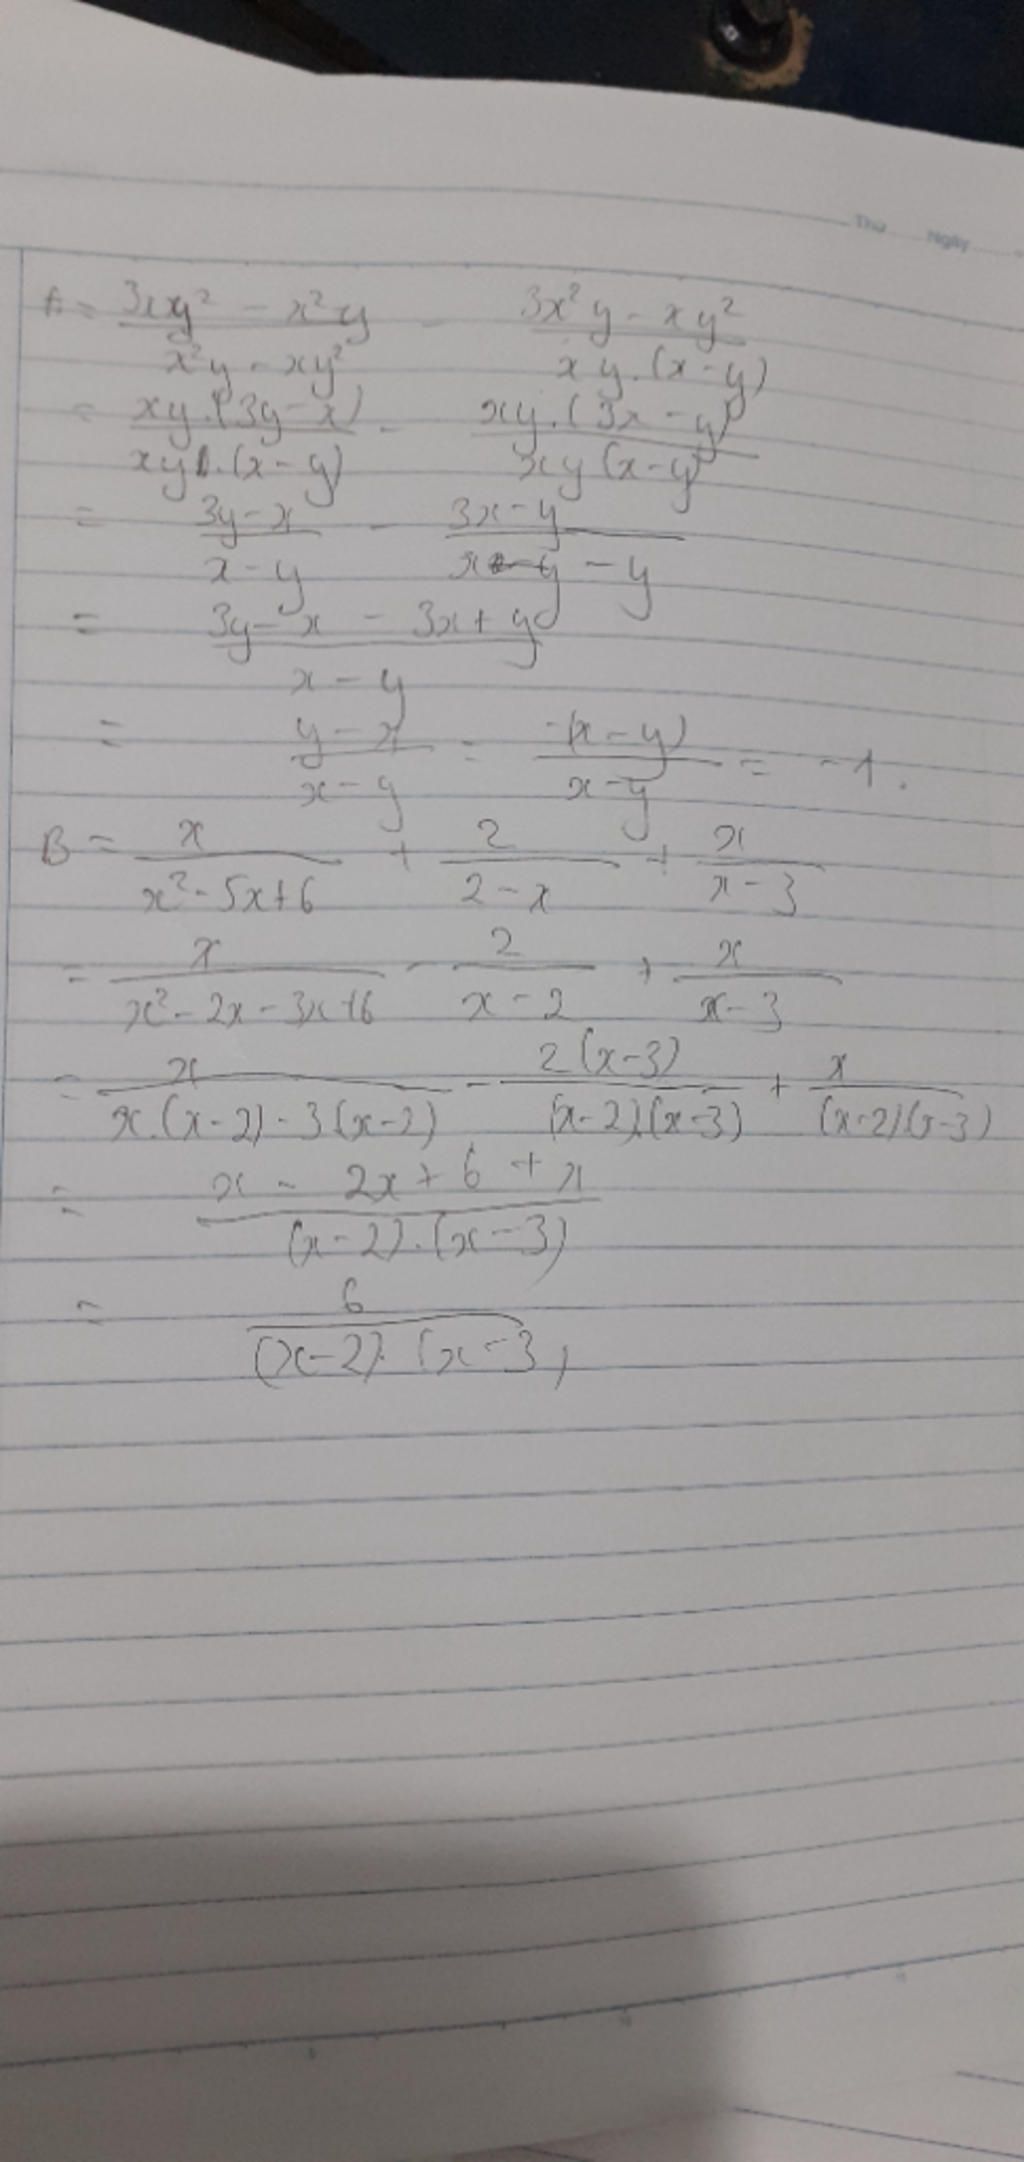 Thứ Ngày
A = (3xy² - x²y)/(x²y - xy²) - (3x²y - xy²)/(xy.(x-y))
= (xy.(3y-x))/(xy.(x-y)) - (xy.(3x-y))/(xy(x-y))
= (3y-x)/(x-y) - (3x-y)/(x-y)
= (3y-x - 3x+y)/(x-y)
= (y-x)/(x-y) = (-(x-y))/(x-y) = -1.
B = x/(x²-5x+6) + 2/(2-x) + x/(x-3)
= x/(x²-2x-3x+6) - 2/(x-2) + x/(x-3)
= x/(x.(x-2)-3(x-2)) - (2(x-3))/((x-2).(x-3)) + x/((x-2)(x-3))
= (x - 2x+6+x)/((x-2).(x-3))
= 6/((x-2).(x-3)